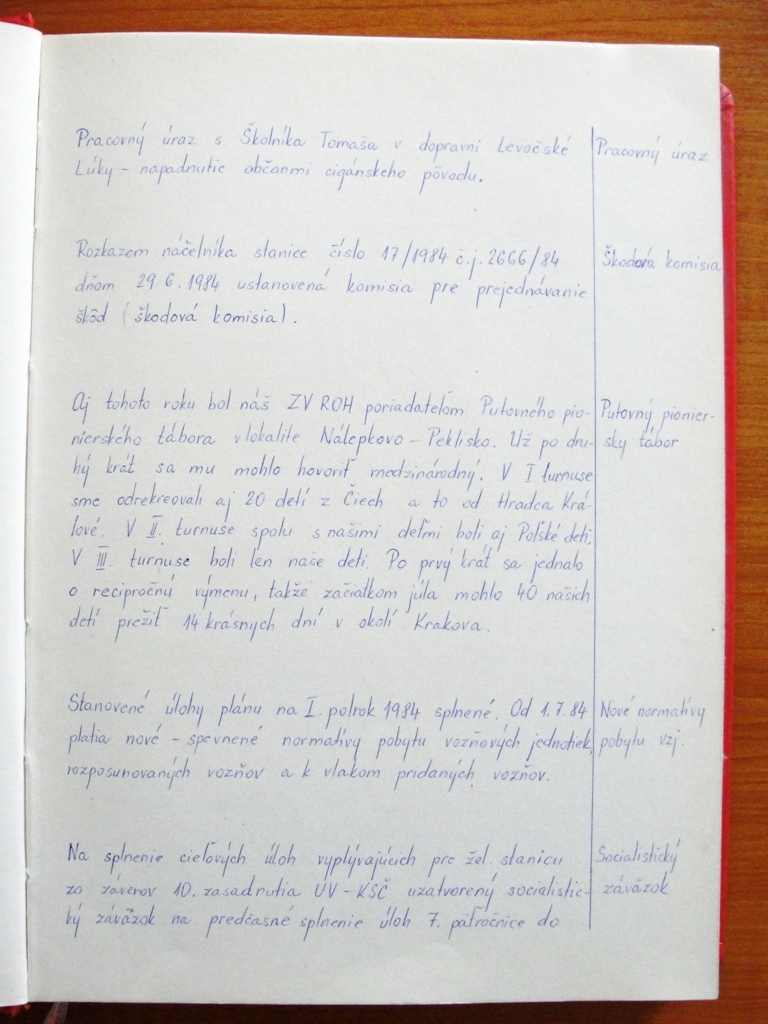 Pracovný úraz s Školníka Tomaša v dopravni Levočské
Lúky - napadnutie občanmi cigánskeho pôvodu.
Pracovný úraz
Rozkazom náčelníka stanice číslo 17/1984 č.j. 2666/84
dňom 29.6.1984 ustanovená komisia pre prejednávanie
škôd (škodová komisia).
Škodová komisia
Aj tohoto roku bol náš ZV ROH poriadateľom Putovného pio-
nierského tábora v lokalite Nálepkovo - Peklisko. Už po dru-
hý krát sa mu mohlo hovoriť medzinárodný. V I turnuse
sme odrekreovali aj 20 detí z Čiech a to od Hradca Krá-
lové. V II. turnuse spolu s našimi deťmi boli aj Poľské deti.
V III. turnuse boli len naše deti. Po prvý krát sa jednalo
o recipročnú výmenu, takže začiatkom júla mohlo 40 našich
detí prežiť 14 krásnych dní v okolí Krakova.
Putovný pionier-
sky tábor
Stanovené úlohy plánu na I. polrok 1984 splnené. Od 1.7.84
platia nové - spevnené normatívy pobytu vozňových jednotiek,
rozposunovaných vozňov a k vlakom pridaných vozňov.
Nové normatívy
pobytu vzj.
Na splnenie cieľových úloh vyplývajúcich pre žel. stanicu
zo záverov 10. zasadnutia ÚV - KSČ uzatvorený socialistic-
ký záväzok na predčasné splnenie úloh 7. päťročnice do
Socialistický
záväzok